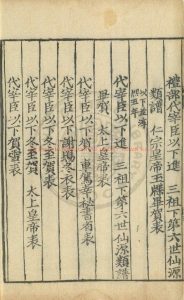 禮部代宰臣以下進　三祖下第六世仙源
類譜　仁宗皇帝玉牒畢賀表
代宰臣以下進　三祖下第六世仙源類譜
畢賀　太上皇帝表
代宰臣以下賀　車駕幸秘書省表
代宰臣以下謝賜冬衣表
代宰臣以下冬至賀表
代宰臣以下冬至賀　太上皇帝表
代宰臣以下賀雪表